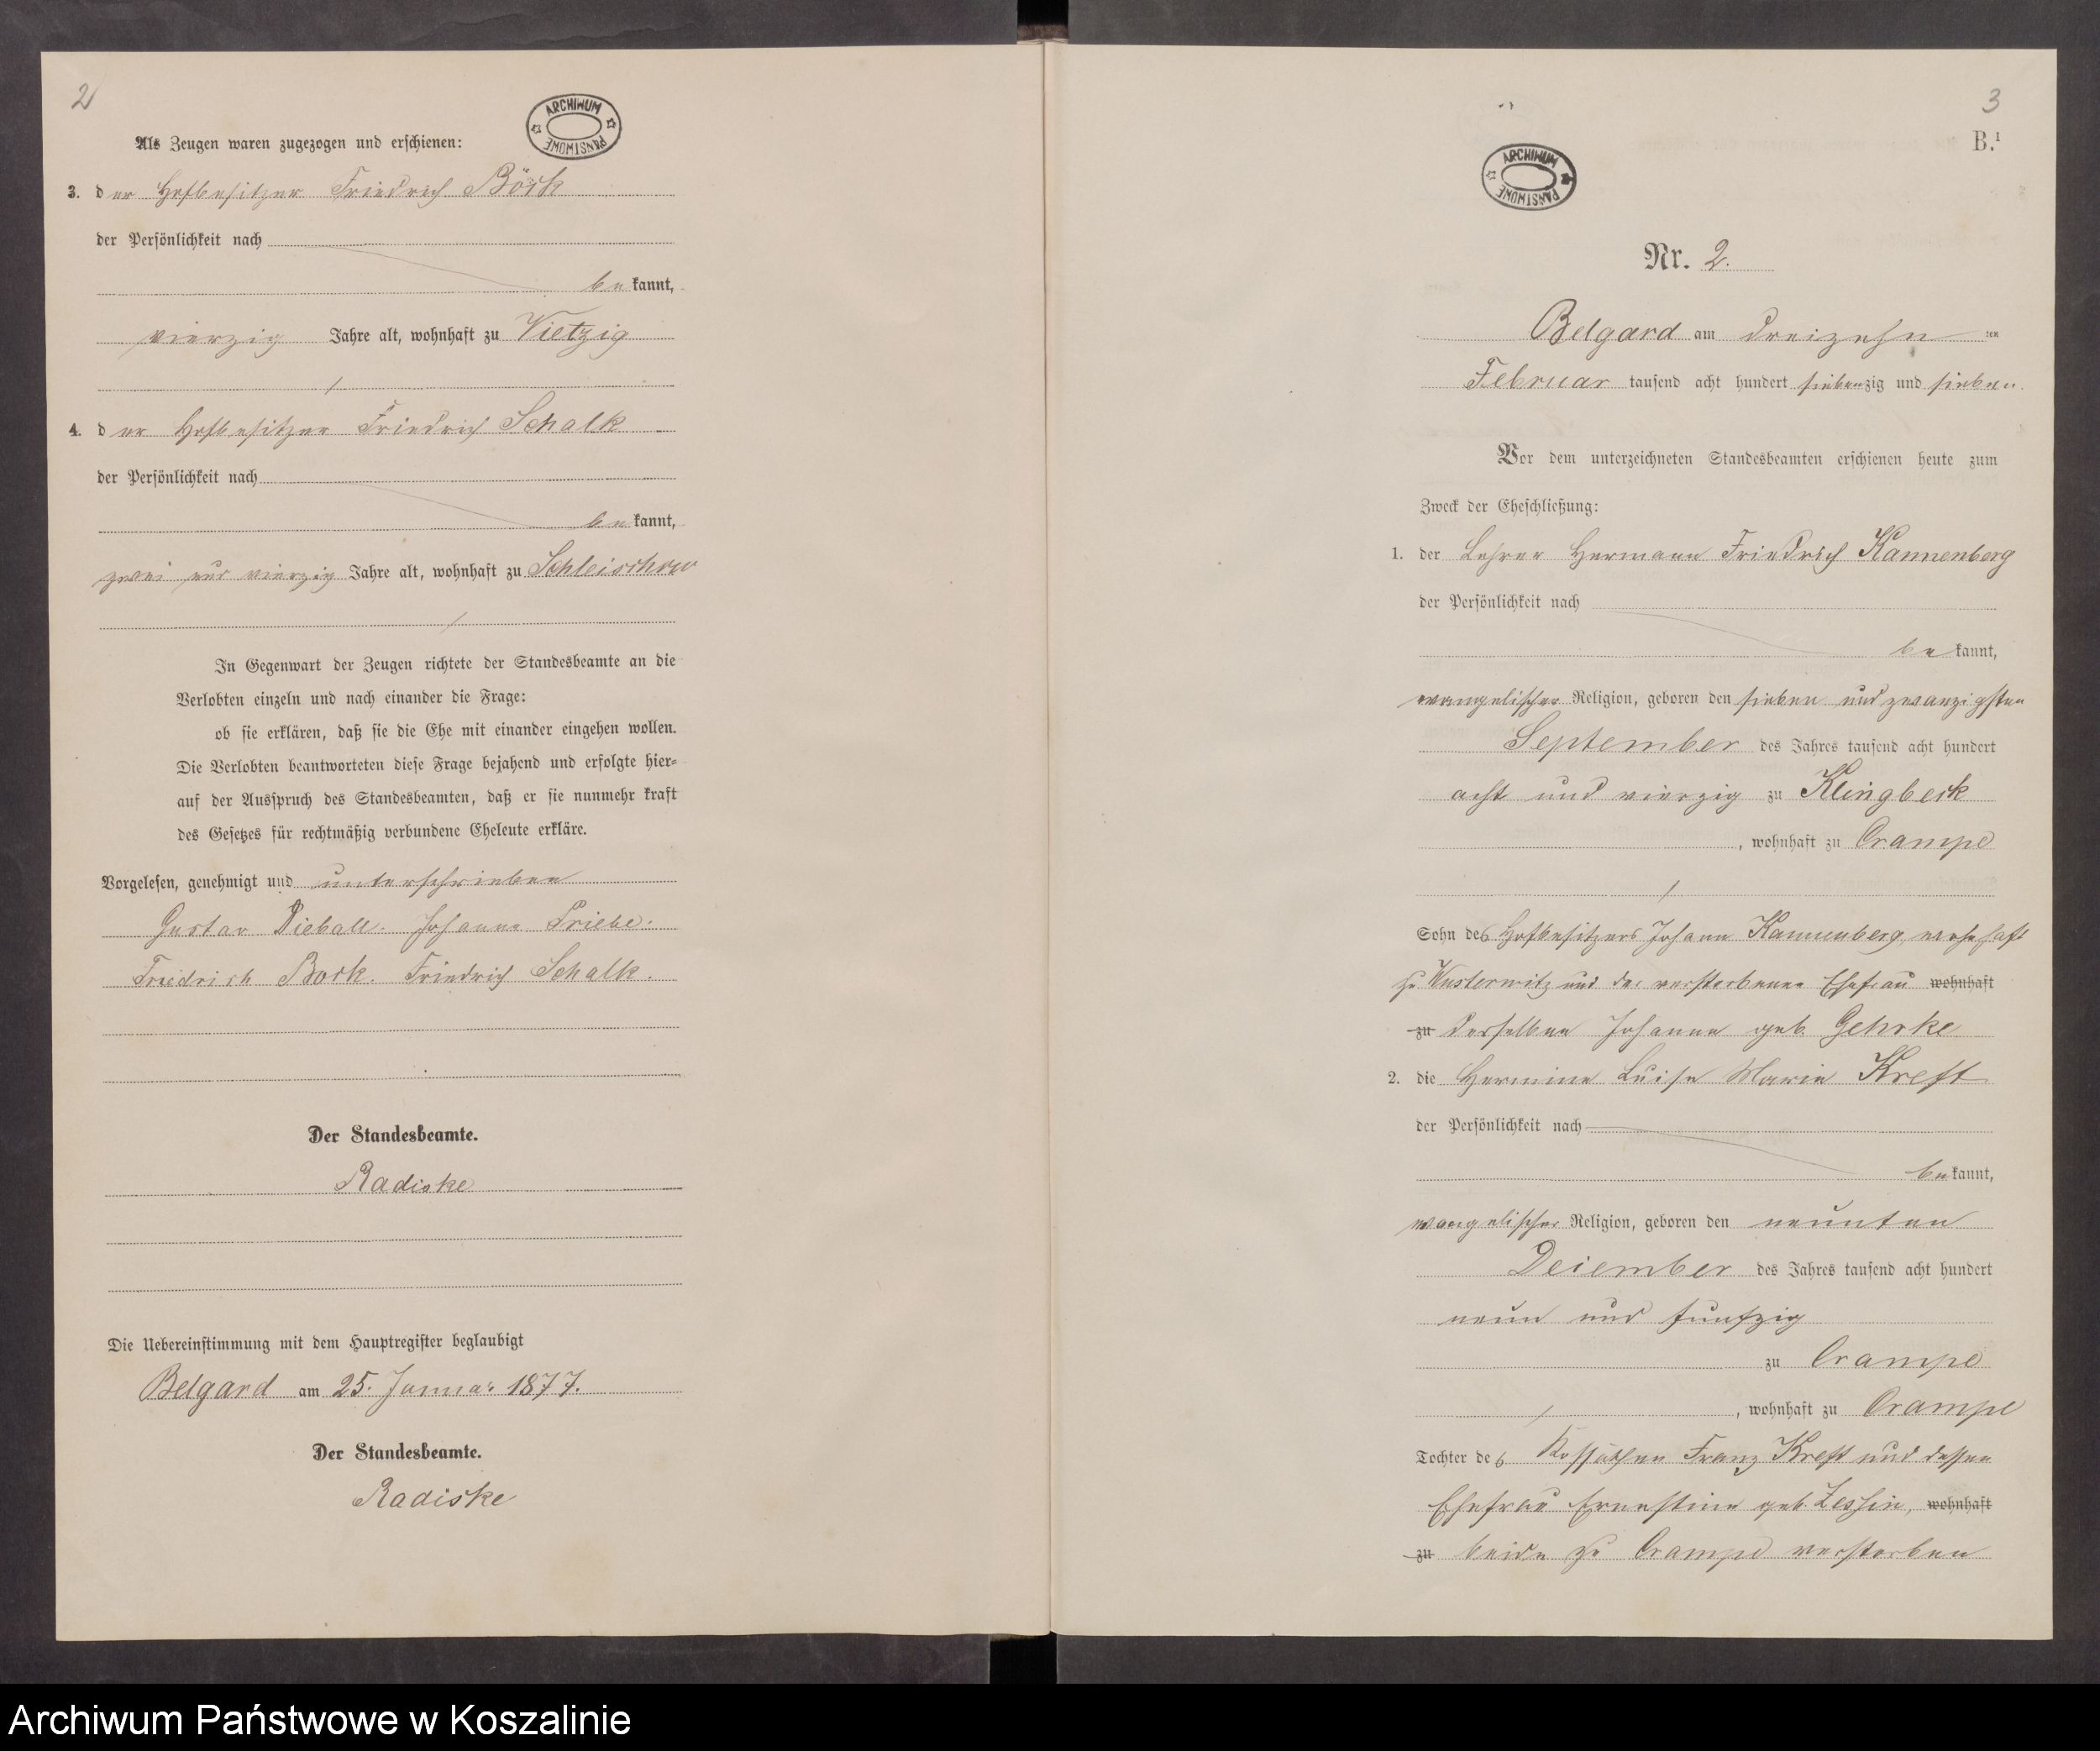 2
ARCHIWUM PAŃSTWOWE
Als Zeugen waren zugezogen und erschienen:
3. der Hofbesitzer Friedrich Böck
der Persönlichkeit nach
bekannt,
vierzig Jahre alt, wohnhaft zu Vietzig
4. der Hofbesitzer Friedrich Schalk
der Persönlichkeit nach
bekannt,
zwei und vierzig Jahre alt, wohnhaft zu Schleischow
In Gegenwart der Zeugen richtete der Standesbeamte an die
Verlobten einzeln und nach einander die Frage:
ob sie erklären, daß sie die Ehe mit einander eingehen wollen.
Die Verlobten beantworteten diese Frage bejahend und erfolgte hier=
auf der Ausspruch des Standesbeamten, daß er sie nunmehr kraft
des Gesetzes für rechtmäßig verbundene Eheleute erkläre.
Vorgelesen, genehmigt und unterschrieben
Gustav Dieball. Johanne Priebe.
Friedrich Bock. Friedrich Schalk.
Der Standesbeamte.
Radiske
Die Uebereinstimmung mit dem Hauptregister beglaubigt
Belgard am 25. Januar 1877.
Der Standesbeamte.
Radiske
3
B.¹
ARCHIWUM PAŃSTWOWE
Nr. 2.
Belgard am dreizehnten
Februar tausend acht hundert siebenzig und sieben.
Vor dem unterzeichneten Standesbeamten erschienen heute zum
Zweck der Eheschließung:
1. der Lehrer Hermann Friedrich Kannenberg
der Persönlichkeit nach
bekannt,
evangelischer Religion, geboren den sieben und zwanzigsten
September des Jahres tausend acht hundert
acht und vierzig zu Klingbeck
, wohnhaft zu Crampe
Sohn des Hofbesitzers Johann Kannenberg, wohnhaft
zu Wusterwitz und der verstorbenen Ehefrau wohnhaft
zu desselben Johanne geb. Gehrke
2. die Hermine Luise Marie Kreft
der Persönlichkeit nach
bekannt,
evangelischer Religion, geboren den neunten
Dezember des Jahres tausend acht hundert
neun und funfzig
zu Crampe
, wohnhaft zu Crampe
Tochter des Kossäthen Franz Kreft und dessen
Ehefrau Ernestine geb. Zessin, wohnhaft
zu beide zu Crampe verstorben
Archiwum Państwowe w Koszalinie